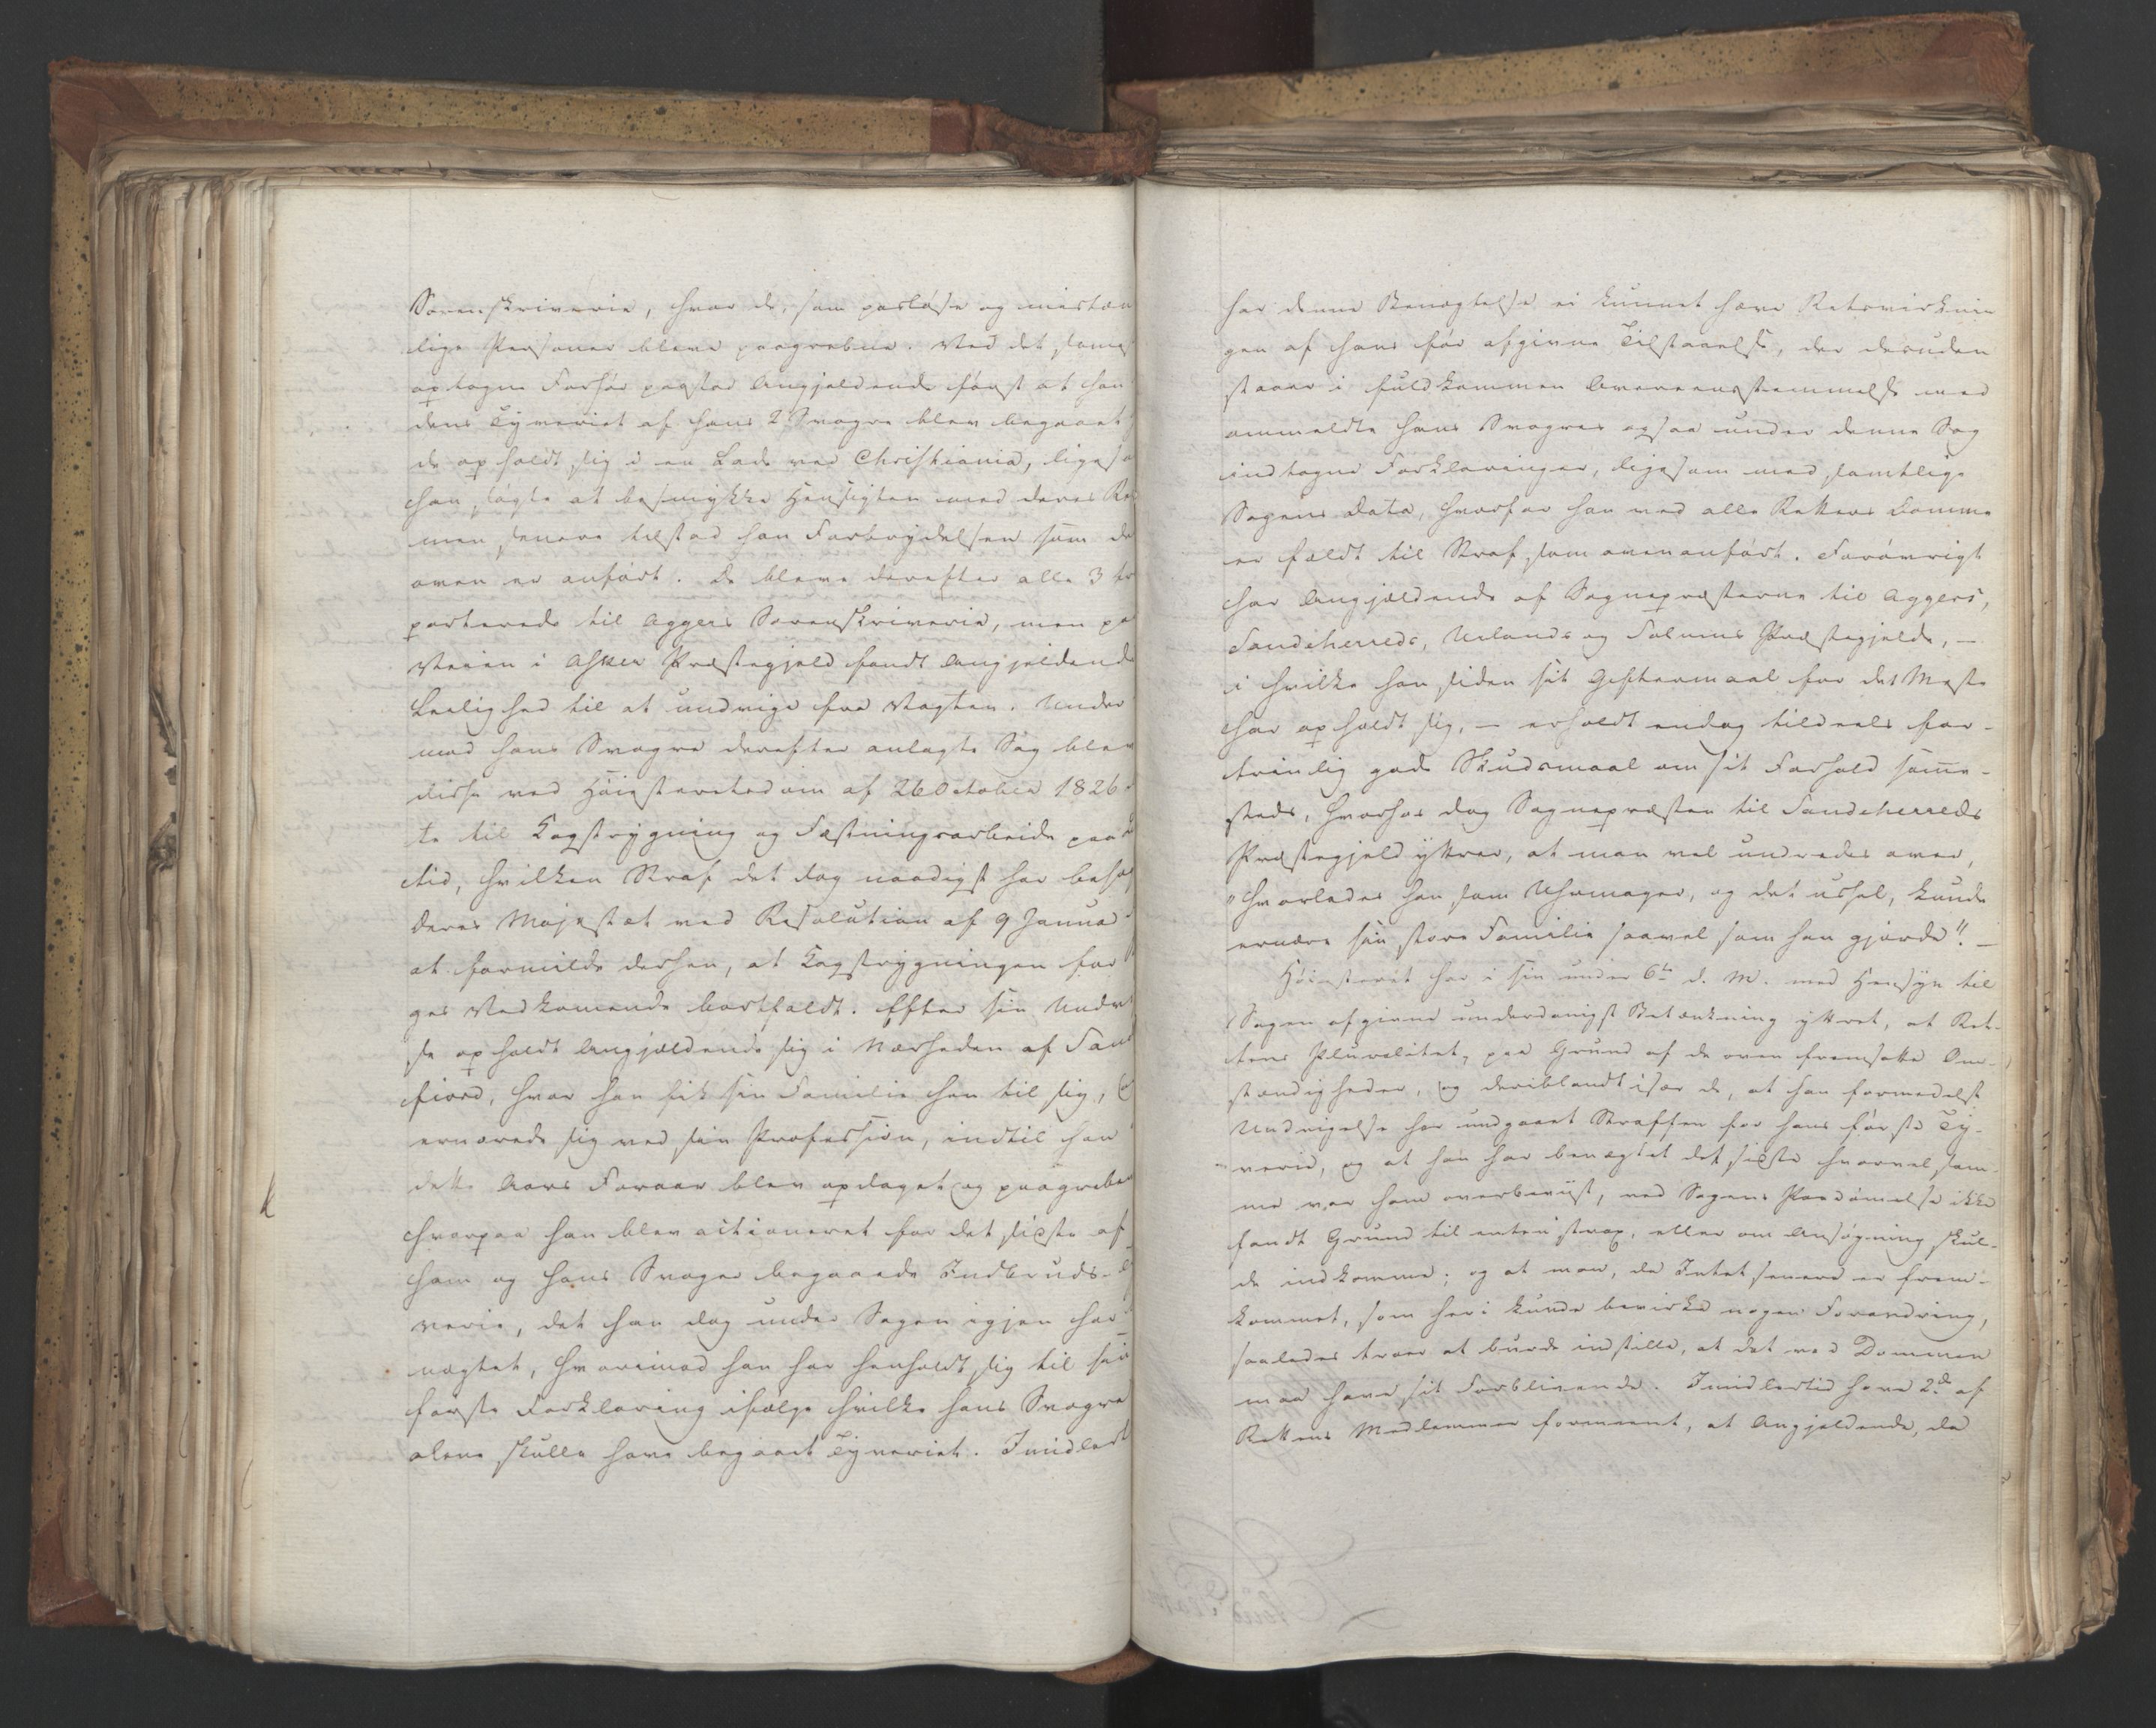 Sorenskriverie, hvor de, som pasløse og mistæn
lige Personer bleve paagrebne. Ved det samme
optagne Forhør paastod Angjeldende først at han
dens Tyveriet af hans 2 Svogre blev begaaet
de opholdt sig i en Lade ved Christiania, ligesa
han søgte at besmykke Hensigten med deres Re
men senere tilstod han Forbrydelsen som de
oven er anført. De bleve derefter alle 3 tr
porterede til Aggers Sorenskriverie, men pa
Veien i Asker Præstegjeld fandt Angjeldende
Leilighed til at undvige fra Vagten. Under
mod hans Svogre derefter anlagte Sag blev
disse ved Høiesteretsdom af 26 October 1826
te til Kagstrygning og Fæstningsarbeide paa L
tid, hvilken Straf det dog naadigst har behag
Deres Majestæt ved Resolution af 9 Janua
at formilde derhen, at Kagstrygningen for
ges Vedkomende bortfaldt. Efter sin Undvi
se opholdt Angjældende sig i Nærheden af Sand
fiord, hvor han fik sin Familie hen til sig, o
ernærede sig ved sin Profession, indtil han
dette Aars Foraar blev opdaget og paagreben
hvorpaa han blev actioneret for det sidste af
ham og hans Svoger begaaede Indbruds-
verie, det han dog under Sagen igjen har
nægtet, hvorimod han har henholdt sig til sin
første Forklaring ifølge hvilke hans Svogre
alene skulle have begaaet Tyveriet. Imidlert
har denne Benægtelse ei kunnet hæve Retsvirknin
gen af hans før afgivne Tilstaaelse, der desuden
staaer i fuldkommen Overeensstemmelse med
ommeldte hans Svogres ogsaa under denne Sag
indtagne Forklaringer, ligesom med samtlige
Sagens Data, hvorfor han ved alle Retters Domme
er fældt til Straf som ovenanført. Forøvrigt
har Angjældende af Sognepræsterne til Aggers,
Sandeherreds, Urlands og Solums Præstegjelde, —
i hvilke han siden sit Gifterma​al for det Meste
har opholdt sig, — erholdt endog tildeels for-
trinlig gode Skudsmaal om sit Forhold samme-
steds, hvorhos dog Sognepræsten til Sandeherreds
Præstegjeld yttrer, at man vel undredes over,
"hvorledes han som Uhrmager, og det ussel, kunde
ernære sin store Familie saavel som han gjorde". —
Høiesteret har i sin under 6te d. M. med Hensyn til
Sagen afgivne underdanigst Betænkning yttret, at Ret-
tens Pluralitet, paa Grund af de oven fremsatte Om-
stændigheder, og deriblandt især de, at han formedelst
Undvigelse har undgaaet Straffen for hans første Ty-
verie, og at han har benægtet det sidste hvorvel sam-
me var ham overbeviist, ved Sagens Paadømelse ikke
fandt Grund til enten strax, eller om Ansøgning skul-
de indkomme; og at man, da Intet senere er frem-
kommet, som heri kunde bevirke nogen Forandring,
saaledes troer at burde indstille, at det ved Dommen
maa have sit Forblivende. Imidlertid have 2de af
Rettens Medlemmer formeent, at Angjeldende, da